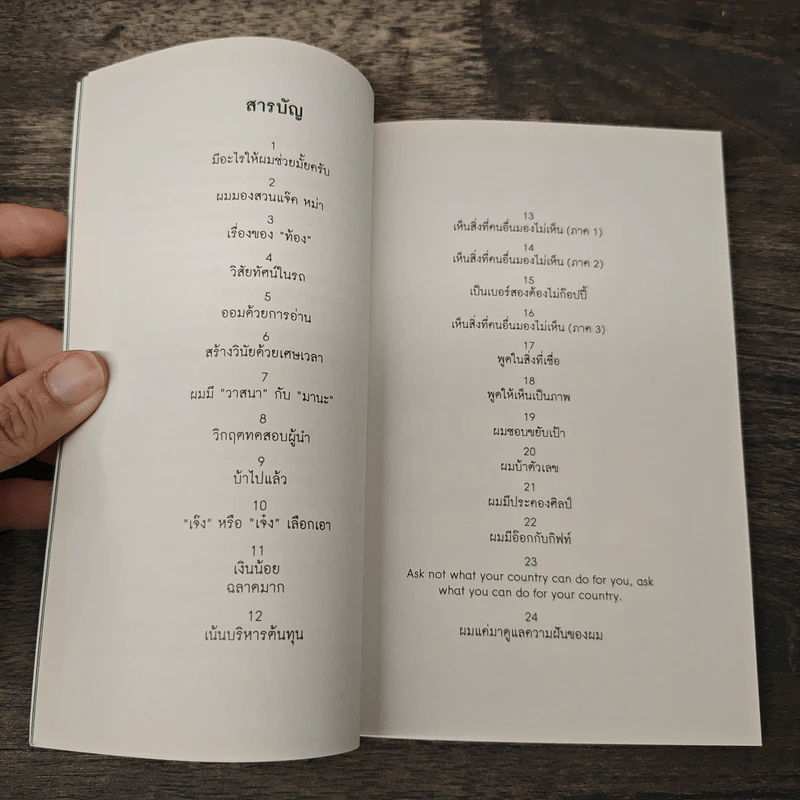 สารบัญ
1
มีอะไรให้ผมช่วยมั้ยครับ
2
ผมมองสวนแจ๊ค หม่า
3
เรื่องของ "ท้อง"
4
วิสัยทัศน์ในรถ
5
ออมด้วยการอ่าน
6
สร้างวินัยด้วยเศษเวลา
7
ผมมี "วาสนา" กับ "มานะ"
8
วิกฤตทดสอบผู้นำ
9
บ้าไปแล้ว
10
"เจ๊ง" หรือ "เจ๋ง" เลือกเอา
11
เงินน้อย
ฉลาดมาก
12
เน้นบริหารต้นทุน
13
เห็นสิ่งที่คนอื่นมองไม่เห็น (ภาค 1)
14
เห็นสิ่งที่คนอื่นมองไม่เห็น (ภาค 2)
15
เป็นเบอร์สองต้องไม่ก๊อปปี้
16
เห็นสิ่งที่คนอื่นมองไม่เห็น (ภาค 3)
17
พูดในสิ่งที่เชื่อ
18
พูดให้เห็นเป็นภาพ
19
ผมชอบขยับเป้า
20
ผมบ้าตัวเลข
21
ผมมีประคองศิลป์
22
ผมมีอ๊อกกับกิฟท์
23
Ask not what your country can do for you, ask
what you can do for your country.
24
ผมแค่มาดูแลความฝันของผม